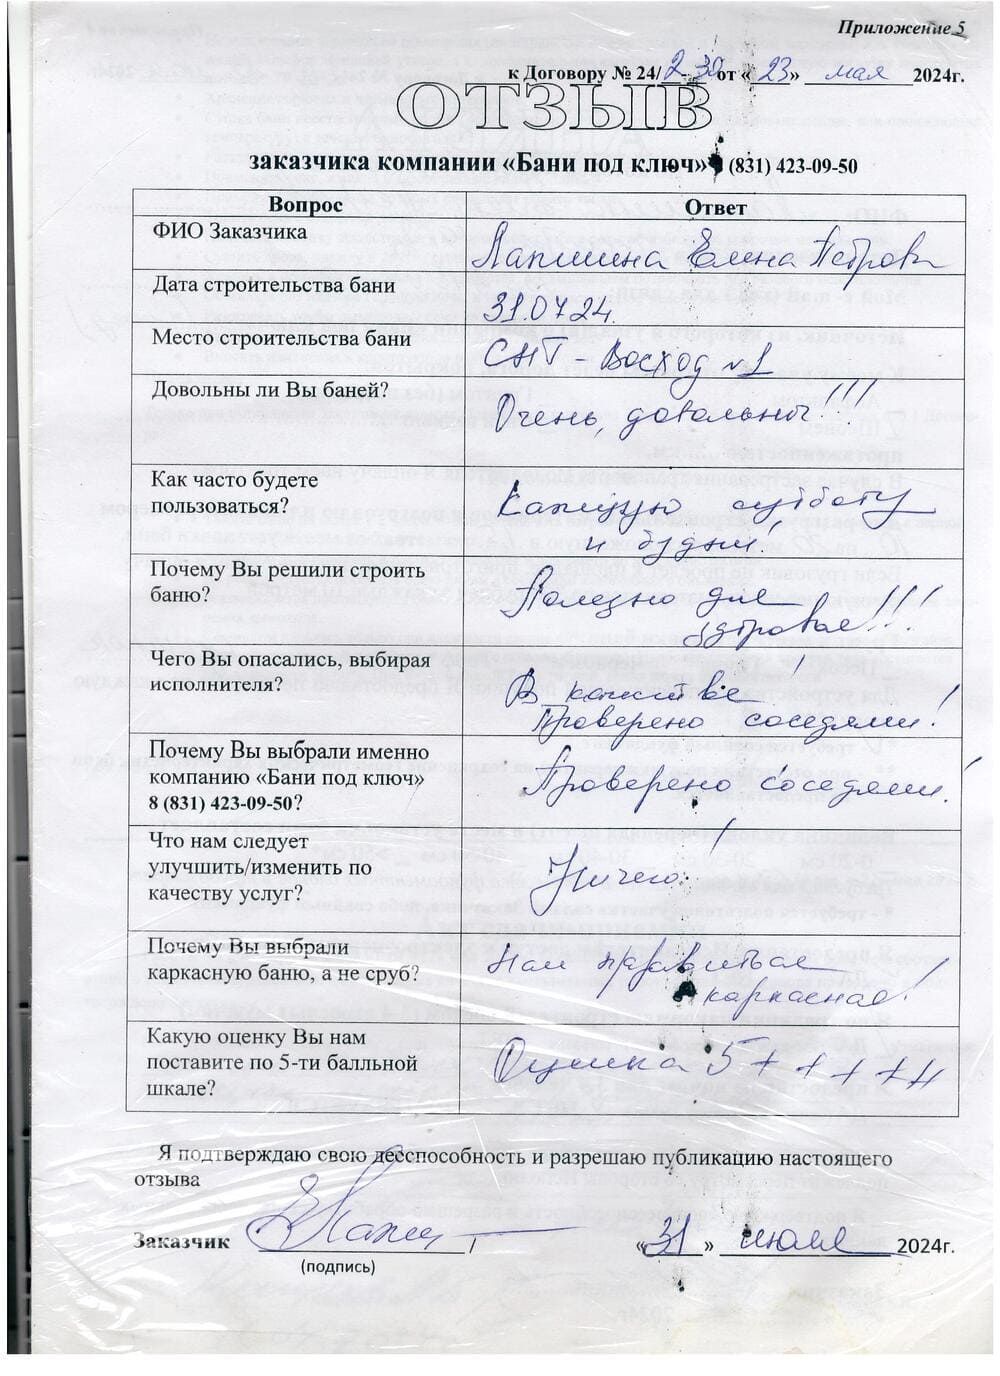 Приложение 5
к Договору № 24/2-30 от «23» мая 2024г.
ОТЗЫВ
заказчика компании «Бани под ключ» (831) 423-09-50
Вопрос Ответ
ФИО Заказчика Лапшина Елена Петровн
Дата строительства бани 31.07.24
Место строительства бани СНТ - Восход №1
Довольны ли Вы баней? Очень, довольны!!!
Как часто будете Каждую субботу
пользоваться? и будни!
Почему Вы решили строить Полезно для
баню? здоровье!!!
Чего Вы опасались, выбирая В качистве!
исполнителя? Проверено соседями!
Почему Вы выбрали именно Проверено соседями!
компанию «Бани под ключ»
8 (831) 423-09-50?
Что нам следует Ничего!
улучшить/изменить по
качеству услуг?
Почему Вы выбрали Нам нравиться
каркасную баню, а не сруб? каркасная!
Какую оценку Вы нам Оценка 5+++++
поставите по 5-ти балльной
шкале?
Я подтверждаю свою дееспособность и разрешаю публикацию настоящего
отзыва
Заказчик / «31» июля 2024г.
(подпись)